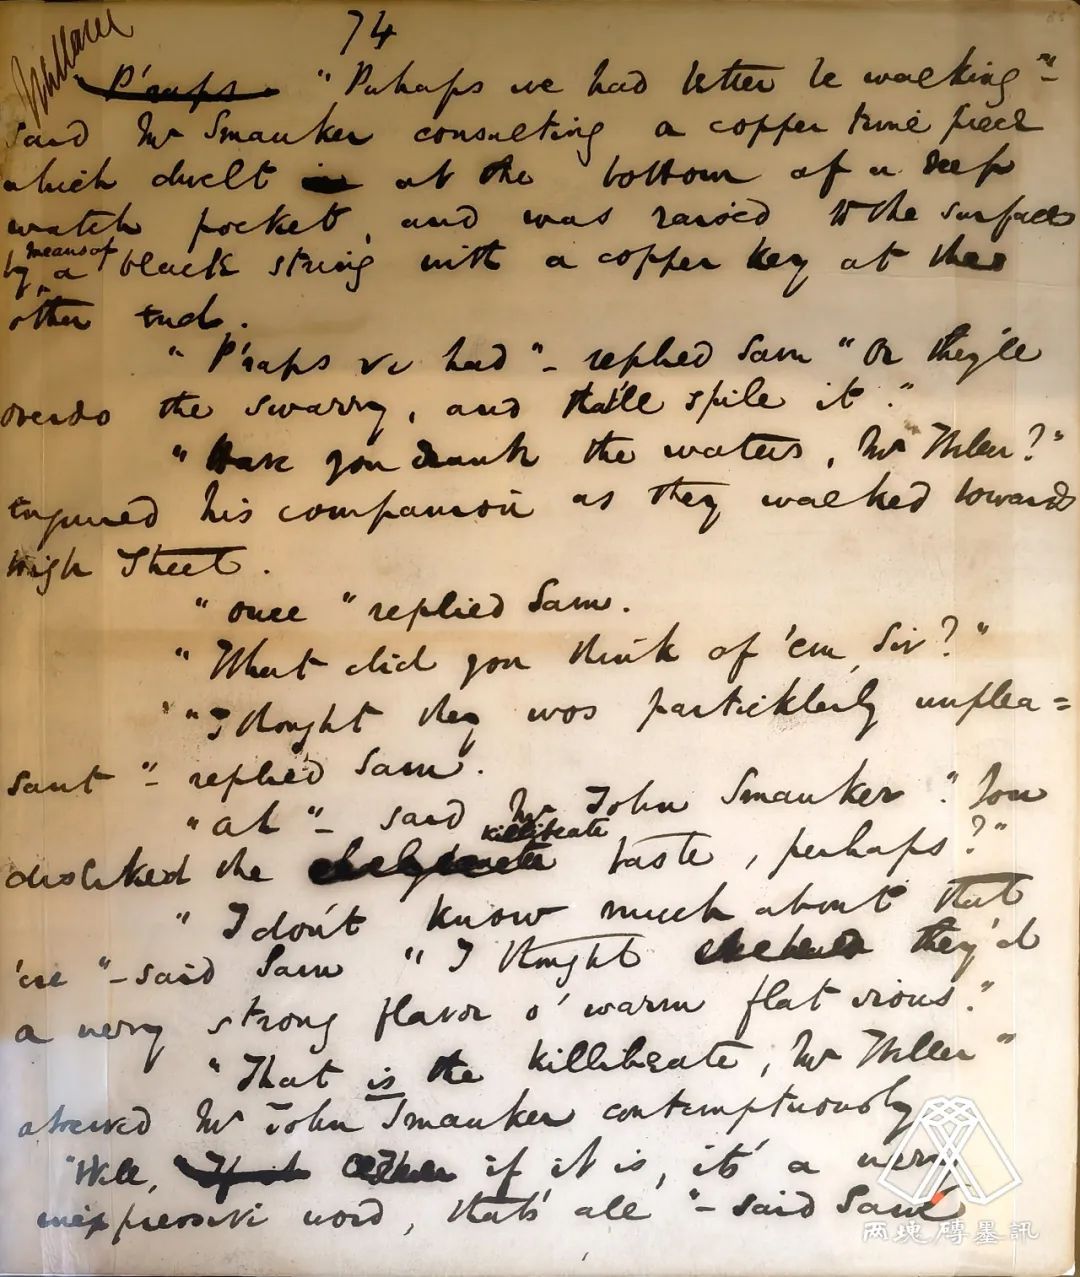 74
P'raps "Perhaps we had better be walking"–
said Mr Smauker consulting a copper time piece
which dwelt at the bottom of a deep
watch pocket, and was raised to the surface
by means of a black string with a copper key at the
other end.
"P'raps ve had"– replied Sam "Or they'll
overdo the swarry, and that'll spile it."
"Have you drank the waters, Mr Weller?"
enquired his companion as they walked towards
High Street.
"once" replied Sam.
"What did you think of 'em, Sir?"
"I thought they wos particklerly unplea=
sant"– replied Sam.
"ah"– said Mr John Smauker. "You
disliked the killibeate taste, perhaps?"
"I don't know much about that
'ere"– said Sam "I thought they'd
a wery strong flavor o' warm flat irons."
"That is the killibeate, Mr Weller"
observed Mr John Smauker contemptuously
"Well, if it is, it's a wery
inexpressive word, that's all"– said Sam
两塊磚墨訊